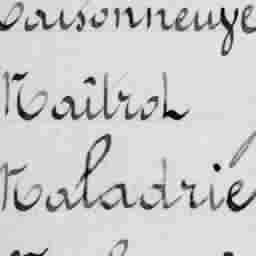 Maisonneuve
Maîtrot
Maladrie